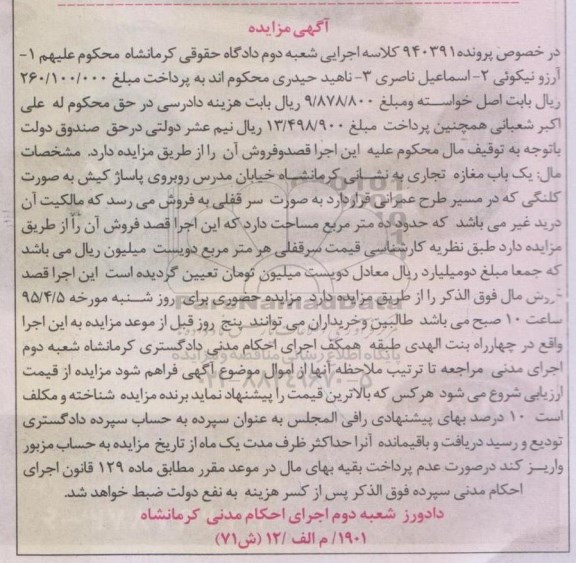 آگهی مزایده
در خصوص پرونده ۹۴۰۳۹۱ کلاسه اجرایی شعبه دوم دادگاه حقوقی کرمانشاه محکوم علیهم ۱-
آرزو نیکوئی ۲- اسماعیل ناصری ۳- ناهید حیدری محکوم اند به پرداخت مبلغ ۲۶۰/۱۰۰/۰۰۰
ریال بابت اصل خواسته ومبلغ ۹/۸۷۸/۸۰۰ ریال بابت هزینه دادرسی در حق محکوم له علی
اکبر شعبانی همچنین پرداخت مبلغ ۱۳/۴۹۸/۹۰۰ ریال نیم عشر دولتی درحق صندوق دولت
باتوجه به توقیف مال محکوم علیه این اجرا قصدوفروش آن را از طریق مزایده دارد. مشخصات
مال: یک باب مغازه تجاری به نشانی کرمانشاه خیابان مدرس روبروی پاساژ کیش به صورت
کلنگی که در مسیر طرح عمرانی قرار دارد به صورت سر قفلی به فروش می رسد که مالکیت آن
درید غیر می باشد که حدود ده متر مربع مساحت دارد که این اجرا قصد فروش آن را از طریق
مزایده دارد طبق نظریه کارشناسی قیمت سرقفلی هر متر مربع دویست میلیون ریال می باشد
که جمعا مبلغ دومیلیارد ریال معادل دویست میلیون تومان تعیین گردیده است این اجرا قصد
فروش مال فوق الذکر را از طریق مزایده دارد مزایده حضوری برای روز شنبه مورخه ۹۵/۴/۵
ساعت ۱۰ صبح می باشد طالبین وخریداران می توانند پنج روز قبل از موعد مزایده به این اجرا
واقع در چهارراه بنت الهدی طبقه همکف اجرای احکام مدنی دادگستری کرمانشاه شعبه دوم
اجرای مدنی مراجعه تا ترتیب ملاحظه آنها از اموال موضوع آگهی فراهم شود مزایده از قیمت
ارزیابی شروع می شود هرکس که بالاترین قیمت را پیشنهاد نماید برنده مزایده شناخته و مکلف
است ۱۰ درصد بهای پیشنهادی رافی المجلس به عنوان سپرده به حساب سپرده دادگستری
تودیع و رسید دریافت و باقیمانده آنرا حداکثر ظرف مدت یک ماه از تاریخ مزایده به حساب مزبور
واریز کند درصورت عدم پرداخت بقیه بهای مال در موعد مقرر مطابق ماده ۱۲۹ قانون اجرای
احکام مدنی سپرده فوق الذکر پس از کسر هزینه به نفع دولت ضبط خواهد شد.
دادورز شعبه دوم اجرای احکام مدنی کرمانشاه
۱۹۰۱/ م الف /۱۲ (ش۷۱)